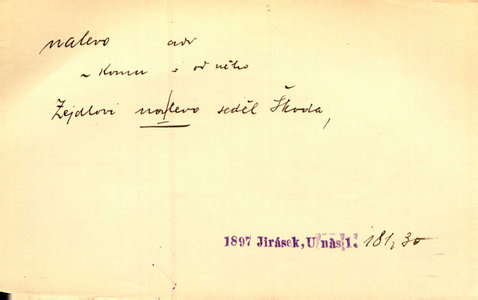 nalevo adv
~ komu = od něho
Zejdlovi na/levo seděl Škoda,
1897 Jirásek, U nás 1. 181,30